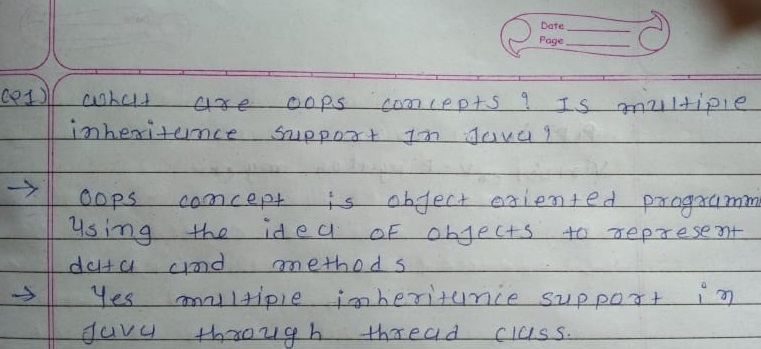 Date
Page
(Q1) What are oops concepts? Is multiple
inheritance support in Java?
→ oops concept is object oriented programmi
Using the idea of objects to represent
data and methods
→ Yes multiple inheritance support in
Java through thread class.